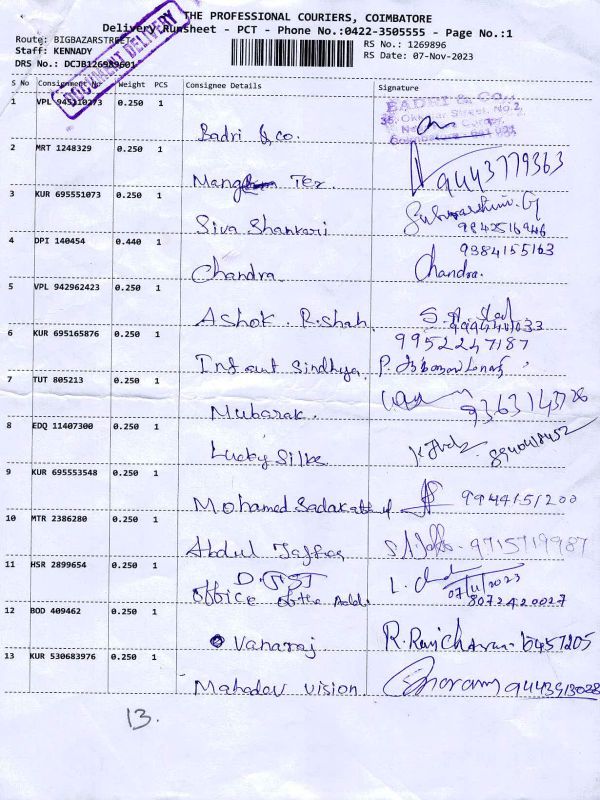 THE PROFESSIONAL COURIERS, COIMBATORE
Delivery Runsheet - PCT - Phone No.:0422-3505555 - Page No.:1
Route: BIGBAZARSTREET
RS No.: 1269896
Staff: KENNADY
RS Date: 07-Nov-2023
DRS No.: DCJB126989601
DOCUMENT DELIVERY
S No Consignment No. Weight PCS Consignee Details Signature
1 VPL 945110273 0.250 1 Badri & co.
BADRI & Co.,
2 MRT 1248329 0.250 1 Tex 9443779363
3 KUR 695551073 0.250 1 Siva Shankari
9842516946
4 DPI 140454 0.440 1 Chandra 9384155163
Chandra.
5 VPL 942962423 0.250 1 Ashok . R. Shah
6 KUR 695165876 0.250 1 Infant Sindhya. 9952247187
7 TUT 805213 0.250 1 Mubarak.
8 EDQ 11407300 0.250 1 Lucky Silks
9 KUR 695553548 0.250 1 Mohamed 9944151200
10 MTR 2386280 0.250 1 Abdul 9715719987
11 HSR 2899654 0.250 1
office of the Addl 07/11/2023
8072420027
12 BOD 409462 0.250 1 Vanaraj
13 KUR 530683976 0.250 1 Mahadev vision
13.